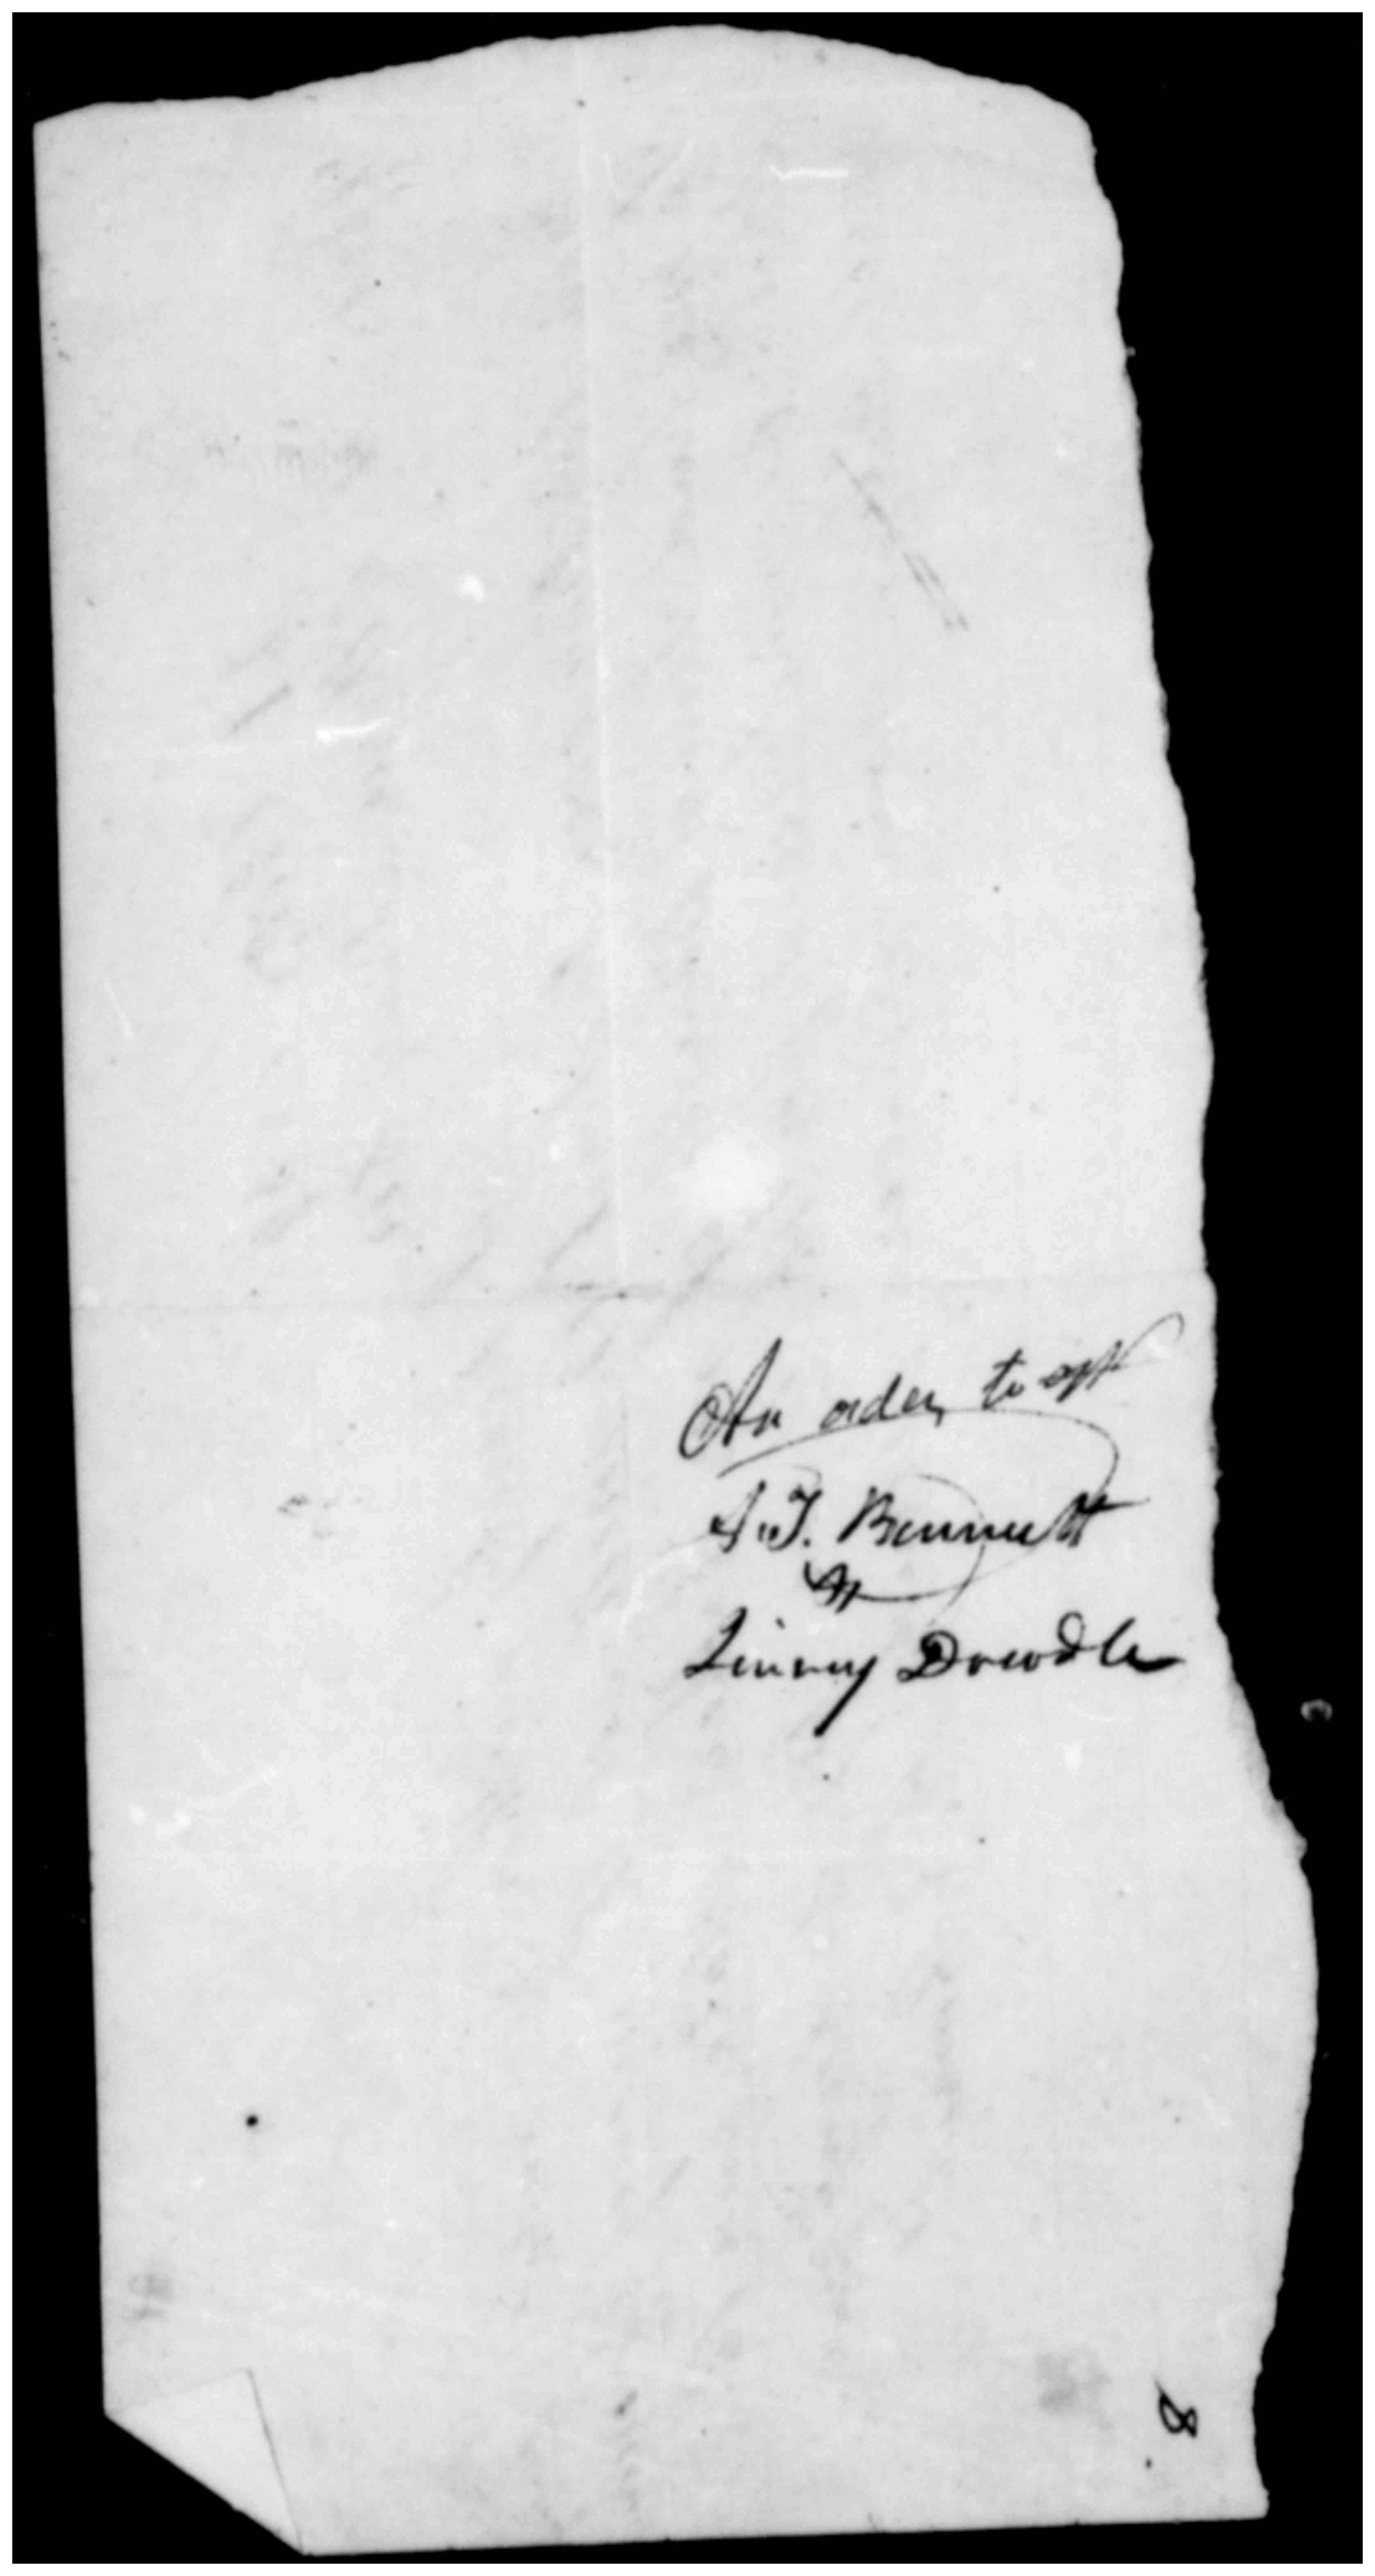 An order to app
J. T. Bennett
Linny Dowdle
8